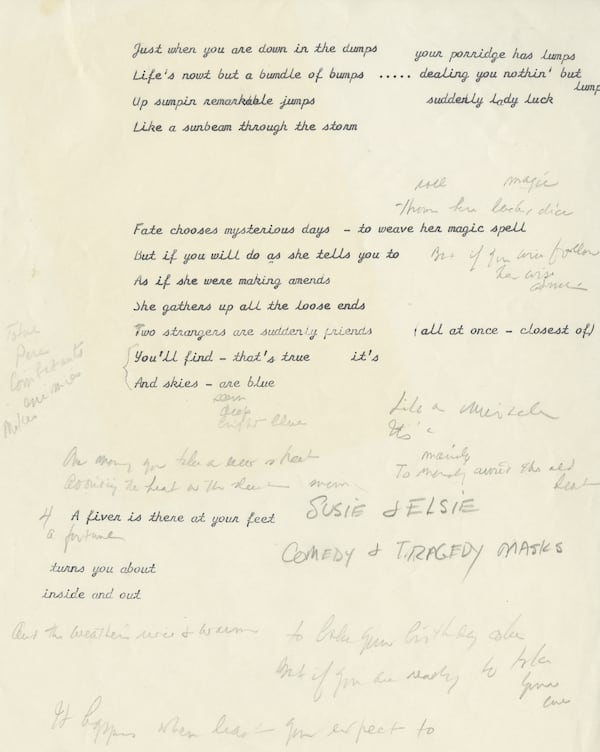 Just when you are down in the dumps your porridge has lumps
Life's nowt but a bundle of bumps ..... dealing you nothin' but lump
Up sumpin remarkable jumps suddenly lady luck
Like a sunbeam through the storm
magic
dice
Fate chooses mysterious days - to weave her magic spell
But if you will do as she tells you to
But if you will follow
As if she were making amends
She gathers up all the loose ends
Two strangers are suddenly friends (all at once - closest of)
You'll find - that's true it's
And skies - are blue
deep
bright blue
Like a miracle
It's a
Take
Pure
Combatants
Makes
One morning you take a new street
Avoiding the heat
4 A fiver is there at your feet
a fortune
SUSIE & ELSIE
COMEDY & TRAGEDY MASKS
turns you about
inside and out
And the weather's nice & warm
to bake your birthday cake
But if you are ready to take
your
cue
It happens when least you expect to